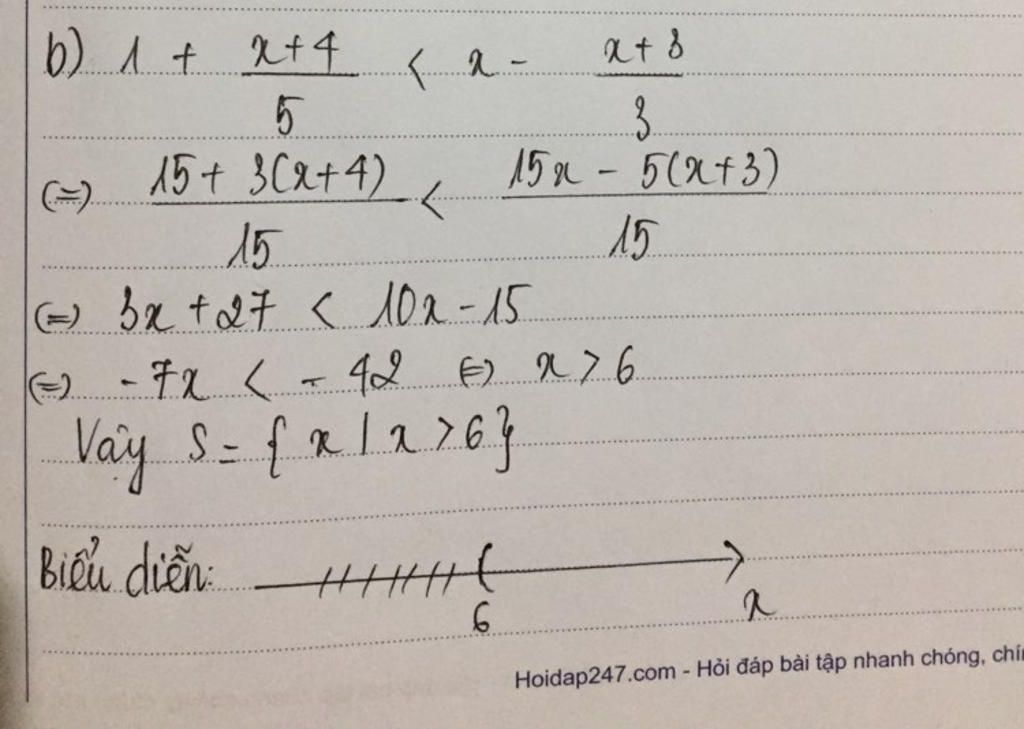 b) 1 + (x+4)/5 < x - (x+3)/3
(=) (15+ 3(x+4))/15 < (15x - 5(x+3))/15
(=) 3x +27 < 10x -15
(=) -7x < -42 (=) x > 6
Vậy S = { x | x > 6 }
Biểu diễn:
(
6
x
Hoidap247.com - Hỏi đáp bài tập nhanh chóng,